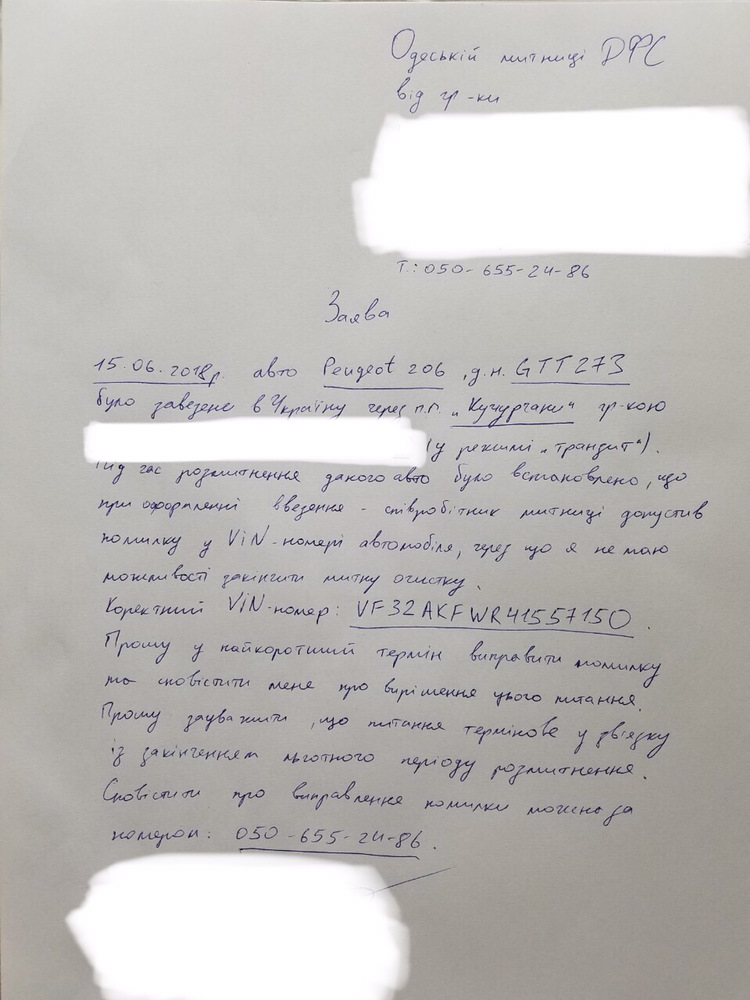 Одеській митниці ДФС
від гр-ки
т.: 050-655-24-86
Заява
15.06.2018р. авто Peugeot 206, д.н. GTT273
було завезено в Україну через п.п. „Кучургани" гр-кою
(у режимі „транзит").
Під час розмитнення даного авто було встановлено, що
при оформленні ввезення - співробітник митниці допустив
помилку у VIN-номері автомобіля, через що я не маю
можливості закінчити митну очистку.
Коректний VIN-номер: VF32AKFWR41557150.
Прошу у найкоротший термін виправити помилку
та сповістити мене про вирішення цього питання.
Прошу зауважити, що питання термінове у зв'язку
із закінченням льготного періоду розмитнення.
Сповістити про виправлення помилки можна за
номером: 050-655-24-86.